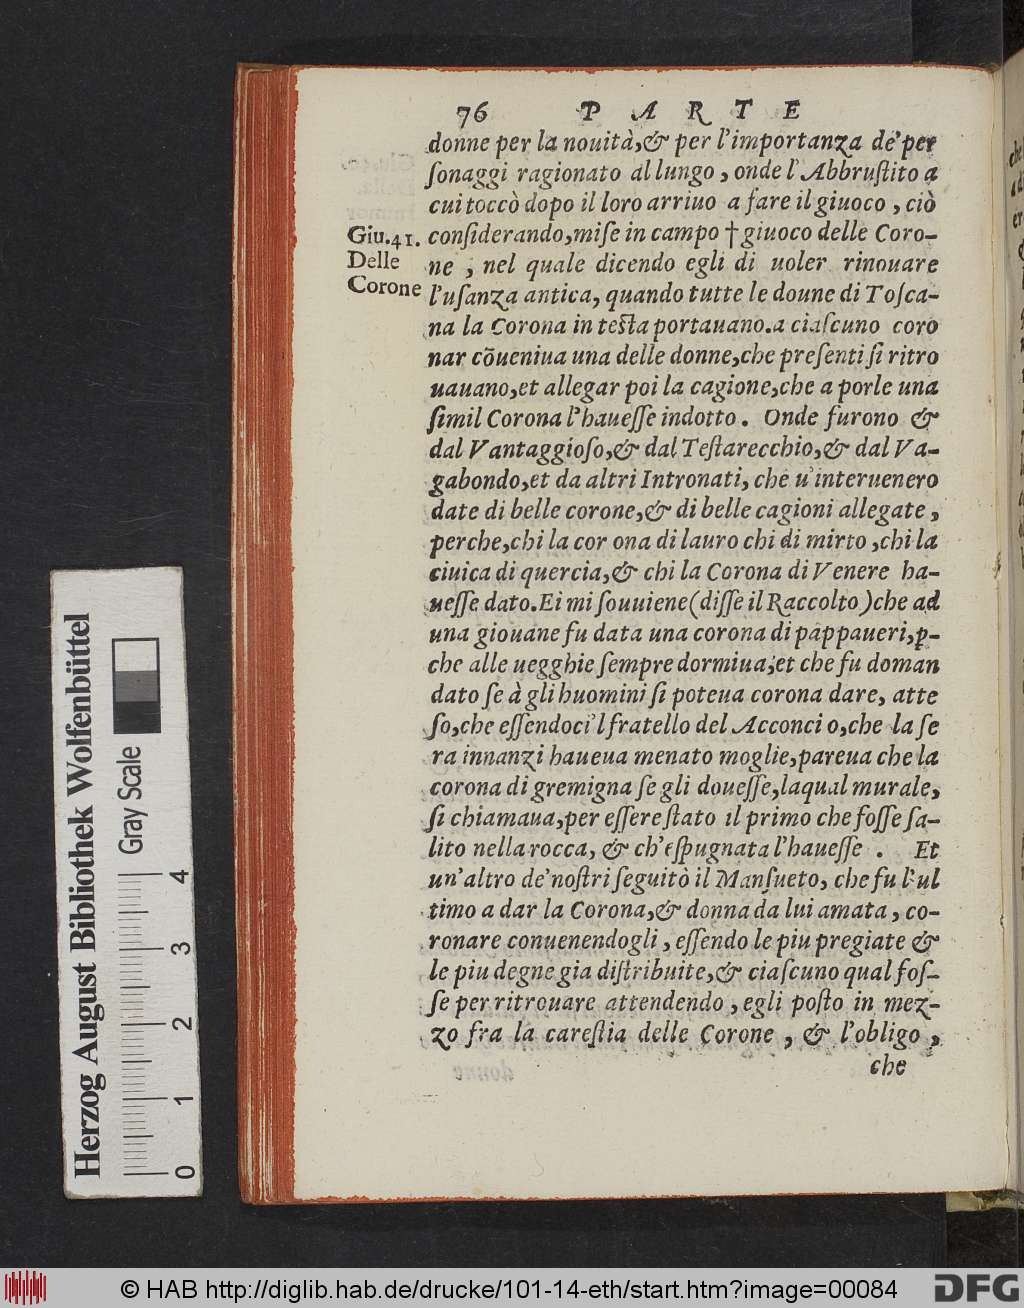 76 PARTE
donne per la nouità,& per l'importanza de' per
ſonaggi ragionato al lungo, onde l'Abbruſtito a
cui toccò dopo il loro arriuo a fare il giuoco, ciò
Giu.41.
Delle
Corone
conſiderando,miſe in campo † giuoco delle Coro-
ne, nel quale dicendo egli di uoler rinouare
l'uſanza antica, quando tutte le doune di Toſca-
na la Corona in teſta portauano.a ciaſcuno coro
nar cõueniua una delle donne,che preſenti ſi ritro
uauano,et allegar poi la cagione,che a porle una
ſimil Corona l'haueſſe indotto. Onde furono &
dal Vantaggioſo,& dal Teſtarecchio,& dal Va-
gabondo,et da altri Intronati, che u'interuenero
date di belle corone,& di belle cagioni allegate,
perche,chi la cor ona di lauro chi di mirto,chi la
ciuica di quercia,& chi la Corona di Venere ha-
ueſſe dato.Ei mi ſouuiene(diſſe il Raccolto)che ad
una giouane fu data una corona di pappaueri,ꝑ-
che alle uegghie ſempre dormiua;et che fu doman
dato ſe à gli huomini ſi poteua corona dare, atte
ſo,che eſſendoci'l fratello del Acconci o,che la ſe
ra innanzi haueua menato moglie,pareua che la
corona di gremigna ſe gli doueſſe,laqual murale,
ſi chiamaua,per eſſere ſtato il primo che foſſe ſa-
lito nella rocca, & ch'eſpugnata l'haueſſe. Et
un'altro de' noſtri ſeguitò il Manſueto, che fu l'ul
timo a dar la Corona,& donna da lui amata, co-
ronare conuenendogli, eſſendo le piu pregiate &
le piu degne gia diſtribuite,& ciaſcuno qual foſ-
ſe per ritrouare attendendo, egli poſto in mez-
zo fra la careſtia delle Corone, & l'obligo,
che
Herzog August Bibliothek Wolfenbüttel
Gray Scale
0 1 2 3 4
© HAB http://diglib.hab.de/drucke/101-14-eth/start.htm?image=00084
DFG